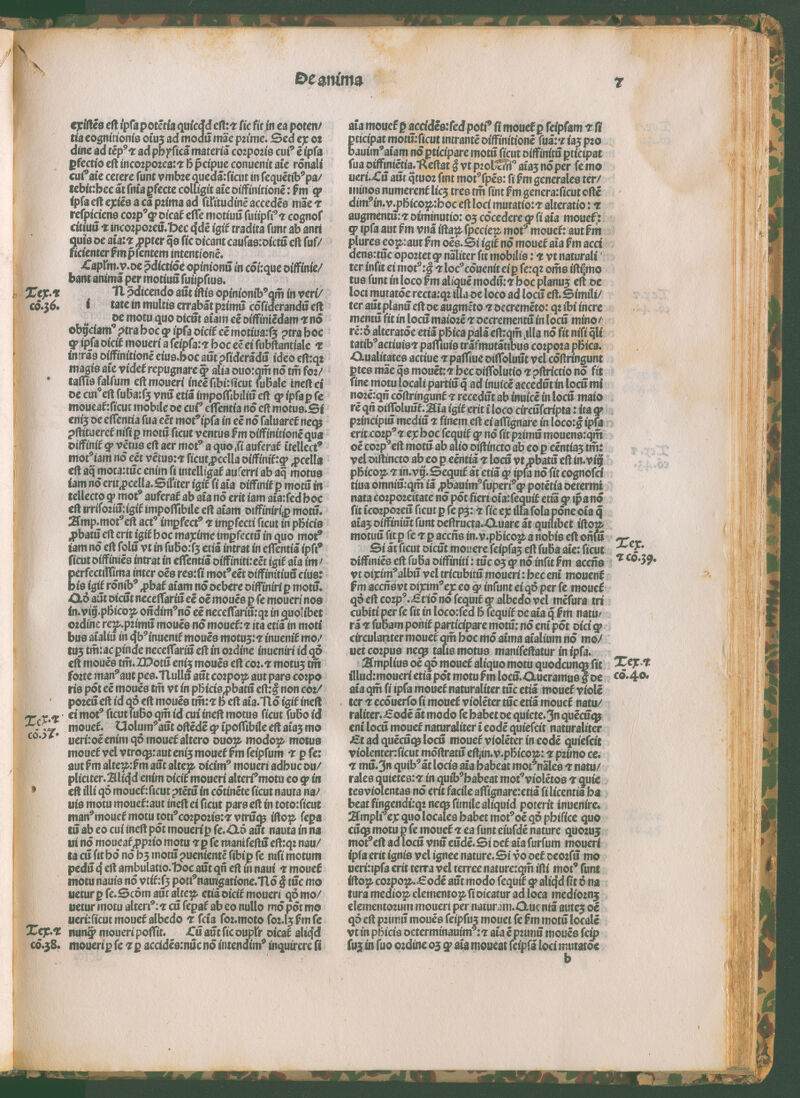 De anima
7
existẽs est ipsa potẽtia quicqd est: ⁊ sic fit in ea poten/
tia cognitionis oĩuʒ ad modũ mãe prime. Sed ex or
dine ad tẽp⁹ ⁊ ad physicã materiã corporis cui⁹ ẽ ipsa
ꝑfectio est incorporea: ⁊ h̃ p̃cipue conuenit aĩe rõnali
cui⁹ aĩe cetere sunt vmbre quedã: sicut in sequẽtib⁹ pa/
tebit: hec ãt snĩa ꝑfecte colligit aĩe diffinitionẽ: s̃m ꝙ
ipsa est exiẽs a cã prima ad sĩlitudinẽ accedẽs mãe ⁊
respiciens corp⁹ ꝙ dicat̃ esse motiuũ suiipsi⁹ ⁊ cognos
citiuũ ⁊ incorporeũ. Hec qdẽ igit̃ tradita sunt ab anti
quis de aĩa: ⁊ ꝓpter q̃s sic dicant causas: dictũ est suf/
ficienter s̃m p̃sentem intentionẽ.
Caplm.v. de ꝯdictiõe opinionũ in cõi: que diffinie/
bant animã per motiuũ suiipsius.
Tex.⁊
cõ.36.
i
N ꝯdicendo aũt istis opinionib⁹ qm̃ in veri/
tate in multis errabãt primũ cõsiderandũ est
de motu quo dicũt aĩam eẽ diffiniẽdam ⁊ nõ
obijciam⁹ ꝯtra hoc ꝙ ipsa dicit̃ eẽ motiua: sʒ ꝯtra hoc
ꝙ ipsa dicit̃ moueri a seipsa: ⁊ hoc eẽ ei substantiale ⁊
intras diffinitionẽ eius. hoc aũt ꝯsiderãdũ ideo est: qꝛ
magis aĩe videt̃ repugnare ꝙ̃ alia duo: qm̃ nõ tm̃ for/
tassis falsum est moueri ineẽ sibi: sicut subãle inest ei
de cui⁹ est suba: sʒ vnũ etiã impossibiliũ est ꝙ ipsa ꝑ se
moueat̃: sicut mobile de cui⁹ essentia nõ est motus. Si
eniʒ de essentia sua eẽt mot⁹ ipsa in eẽ nõ saluaret̃ neqʒ
ꝯstitueret̃ nisi ꝑ motũ sicut ventus s̃m diffinitionẽ qua
diffinit̃ ꝙ vẽtus est aer mot⁹ a quo si auferat̃ ĩtellect⁹
mot⁹ iam nõ eẽt vẽtus: ⁊ sicut ꝓcella diffinit̃: ꝙ ꝓcella
est aq̃ mota: tũc enim si intelligat̃ auferri ab aq̃ motus
iam nõ erit ꝓcella. Sĩliter igit̃ si aĩa diffinit̃ ꝑ motũ in
tellecto ꝙ mot⁹ auferat̃ ab aĩa nõ erit iam aĩa: sed hoc
est irrisoriũ: igit̃ impossibile est aĩam diffiniri ꝑ motũ.
Amp. mot⁹ est act⁹ impfect⁹ ⁊ impfecti sicut in phicis
ꝓbatũ est erit igit̃ hoc maxime impfectũ in quo mot⁹
iam nõ est solũ vt in subo: sʒ etiã intrat in essentiã ipsi⁹
sicut diffiniẽs intrat in essentiã diffiniti: eẽt igit̃ aĩa im/
perfectissima inter oẽs res: si mot⁹ eẽt diffinitiuũ eius:
his igit̃ rõnib⁹ ꝓbat̃ aĩam nõ debere diffiniri ꝑ motũ.
Qõ aũt dicũt necessariũ eẽ oẽ mouẽs ꝑ se moueri nos
in.viij. phicoꝝ oñdim⁹ nõ eẽ necessariũ: qꝛ in quolibet
ordine reꝝ. primũ mouẽs nõ mouet̃: ⁊ ita etiã in moti
bus aĩaliũ in qb⁹ inuenit̃ mouẽs motuʒ: ⁊ inuenit̃ mo/
tuʒ tm̃: ac ꝑinde necessariũ est in ordine inueniri id qõ
est mouẽs tm̃. Motũ eniʒ mouẽs est cor. ⁊ motuʒ tm̃
forte man⁹ aut pes. Nullũ aũt corpoꝝ aut pars corpo
ris põt eẽ mouẽs tm̃ vt in phicis ꝓbatũ est: g̊ non cor/
poreũ est id qõ est mouẽs tm̃: ⁊ h̃ est aĩa. Nõ igit̃ inest
Tex.⁊
cõ.37.
ei mot⁹ sicut subo qm̃ id cui inest motus sicut subo id
mouet̃. Uolum⁹ aũt ostẽdẽ ꝙ ĩpossibile est aĩaʒ mo
ueri: oẽ enim qõ mouet̃ altero duoꝝ modoꝝ motus
mouet̃ vel vtroqʒ: aut eniʒ mouet̃ s̃m seipsum ⁊ ꝑ se:
aut s̃m alteꝝ: s̃m aũt alteꝝ dicim⁹ moueri adhuc du/
pliciter. Aliqd enim dicit̃ moueri alteri⁹ motu eo ꝙ in
est illi qõ mouet̃: sicut ꝯtẽtũ in cõtinẽte sicut nauta na/
uis motu mouet̃: aut inest ei sicut pars est in toto: sicut
man⁹ mouet̃ motu toti⁹ corporis: ⁊ vtrũqʒ istoꝝ sepa
tũ ab eo cui inest põt moueri ꝑ se. Qõ aũt nauta in na
ui nõ moueat̃ ꝓprio motu ⁊ ꝑ se manifestũ est: qꝛ nau/
ta cũ sit hõ nõ hʒ motũ ꝯuenientẽ sibi ꝑ se nisi motum
pedũ q̃ est ambulatio. Hoc aũt qñ est in naui ⁊ mouet̃
motu nauis nõ vtit̃: sʒ poti⁹ nauigatione. Nõ g̊ tũc mo
uetur ꝑ se. Scdm aũt alteꝝ etiã dicit̃ moueri qõ mo/
uetur motu alteri⁹: ⁊ cũ sepat̃ ab eo nullo mõ põt mo
ueri: sicut mouet̃ albedo ⁊ scĩa for. moto for. lʒ s̃m se
Tex.⁊
cõ.38.
nunq̃ moueri possit. Cũ aũt sic duplr̃ dicat̃ aliqd
moueri ꝑ se ⁊ ꝑ accidẽs: nũc nõ intendim⁹ inquirere si
aĩa mouet̃ ꝑ accidẽs: sed poti⁹ si mouet̃ ꝑ seipsam ⁊ si
ꝑticipat motũ: sicut intrantẽ diffinitionẽ suã: ⁊ iaʒ pro
bauim⁹ aĩam nõ ꝑticipare motũ sicut diffinitũ ꝑticipat
sua diffiniẽtia. Restat g̊ vt probem⁹ aĩaʒ nõ per se mo
ueri. Cũ aũt q̃tuor sint mot⁹ spẽs: si s̃m generales ter/
minos numerent̃ licʒ tres tm̃ sint s̃m genera: sicut ostẽ
dim⁹ in.v. phicoꝝ: hoc est loci mutatio: ⁊ alteratio: ⁊
augmentũ: ⁊ diminutio: oʒ cõcedere ꝙ si aĩa mouet̃:
ꝙ ipsa aut s̃m vnã istaꝝ specieꝝ mot⁹ mouet̃: aut s̃m
plures eoꝝ: aut s̃m oẽs. Si igit̃ nõ mouet̃ aĩa s̃m acci
dens: tũc oportet ꝙ nãliter sit mobilis: ⁊ vt naturali
ter insit ei mot⁹: g̊ ⁊ loc⁹ cõuenit ei ꝑ se: qꝛ oẽs isti mo
tus sunt in loco s̃m aliquẽ modũ: ⁊ hoc planuʒ est de
loci mutatõe recta: qꝛ illa de loco ad locũ est. Simili/
ter aũt planũ est de augmẽto ⁊ decremẽto: qꝛ ibi incre
mentũ sit in locũ maiorẽ ⁊ decrementũ in locũ mino/
rẽ: d̃ alteratõe etiã phica palã est: qm̃ illa nõ fit nisi q̃li
tatib⁹ actiuis ⁊ passiuis trãsmutãtibus corpora phica.
Qualitates actiue ⁊ passiue dissoluũt vel cõstringunt
ꝑtes mãe q̃s mouẽt: ⁊ hec dissolutio ⁊ ꝯstrictio nõ fit
sine motu locali partiũ q̃ ad inuicẽ accedũt in locũ mi
norẽ: qñ cõstringunt̃ ⁊ recedũt ab inuicẽ in locũ maio
rẽ qñ dissoluũt̃. Aĩa igit̃ erit ĩ loco circũscripta: ita ꝙ
principiũ mediũ ⁊ finem est ei assignare in loco: g̊ ipsa
erit corp⁹ ⁊ ex hoc sequit̃ ꝙ nõ sit primũ mouens: qm̃
oẽ corp⁹ est motũ ab alio distincto ab eo ꝑ cẽntiaʒ tm̃:
vel distincto ab eo ꝑ cẽntiã ⁊ locũ vt ꝓbatũ est in.viij.
phicoꝝ ⁊ in.vij. Sequit̃ ãt etiã ꝙ ipsa nõ sit cognosci
tiua omniũ: qm̃ iã ꝓbauim⁹ superi⁹ ꝙ potẽtia determi
nata corporeitate nõ põt fieri oĩa: sequit̃ etiã ꝙ ip̃a nõ
sit ĩcorporeũ sicut ꝑ se pʒ: ⁊ sic ex illa sola põne oĩa q̃
aĩaʒ diffiniũt sunt destructa. Quare ãt quilibet istoꝝ
motuũ sit ꝑ se ⁊ ꝑ accñs in.v. phicoꝝ a nobis est oñsũ
Tex.
⁊ cõ.39.
Si ãt sicut dicũt mouere seipsaʒ est suba aĩe: sicut
diffiniẽs est suba diffiniti: tũc oʒ ꝙ nõ insit s̃m accñs
vt diximᵘ albũ vel tricubitũ moueri: hec enĩ mouent̃
s̃m accñs vt diximᵘ ex eo ꝙ insunt ei qõ per se mouet̃
qõ est corp⁹. Et iõ nõ sequit̃ ꝙ albedo vel mẽsura tri
cubiti per se sit in loco: sed h̃ sequit̃ de aĩa q̃ s̃m natu/
rã ⁊ subam ponit̃ participare motũ: nõ enĩ põt dici ꝙ
circulariter mouet̃ qm̃ hoc mõ aĩma aĩalium nõ mo/
uet corpus neqʒ talis motus manifestatur in ipsa.
Tex.⁊
cõ.40.
Amplius oẽ qõ mouet̃ aliquo motu quodcunqʒ sit
illud: moueri etiã põt motu s̃m locũ. Queramus g̊ de
aĩa qm̃ si ipsa mouet̃ naturaliter tũc etiã mouet̃ violẽ
ter ⁊ ecõuerso si mouet̃ violẽter tũc etiã mouet̃ natu/
raliter. Eodẽ ãt modo se habet de quiete. In quẽcũqʒ
enĩ locũ mouet̃ naturaliter ĩ eodẽ quiescit naturaliter
Et ad quẽcũqʒ locũ mouet̃ violẽter in eodẽ quiescit
violenter: sicut mõstratũ est in.v. phicoꝝ: ⁊ primo ce.
⁊ mũ. In quib⁹ ãt locis aĩa habeat mot⁹ nãles ⁊ natu/
rales quietes: ⁊ in quib⁹ habeat mot⁹ violẽtos ⁊ quie
tes violentas nõ erit facile assignare: etiã si licentiã ha
beat fingendi: qꝛ neqʒ simile aliquid poterit inuenire.
Ampli⁹ ex quo locales habet mot⁹ oẽ qõ phisice quo
cũqʒ motu ꝑ se mouet̃ ⁊ ea sunt eiusdẽ nature quoruʒ
mot⁹ est ad locũ vnũ eũdẽ. Si det̃ aĩa sursum moueri
ipsa erit ignis vel ignee nature. Si ṽo det̃ deorsũ mo
ueri: ipsa erit terra vel terree nature: qm̃ isti mot⁹ sunt
istoꝝ corpoꝝ. Eodẽ aũt modo sequit̃ ꝙ aliqd sit d̃ na
tura medioꝝ elementoꝝ si dicatur ad loca medioruʒ
elementorum moueri per naturam. Que niã auteʒ oẽ
qõ est primũ mouẽs seipsuʒ mouet se s̃m motũ localẽ
vt in phicis determinauim⁹: ⁊ aĩa ẽ primũ mouẽs seip
suʒ in suo ordine oʒ ꝙ aĩa moueat seipsã loci mutatõe
b